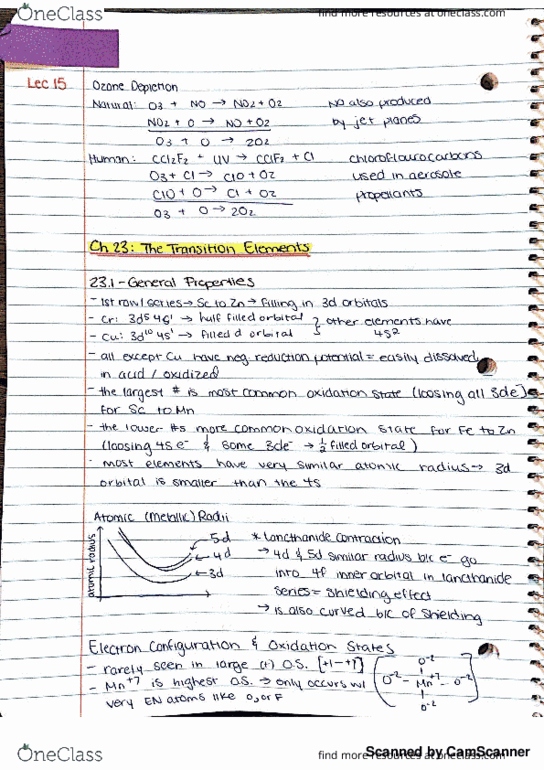 OneClass
find more resources at oneclass.com
Lec 15
Ozone Depletion
Natural: O3 + NO → NO2 + O2
NO also produced
NO2 + O → NO + O2
by jet planes
O3 + O → 2O2
Human: CCl2F2 + UV → CClF2 + Cl
chloroflourocarbons
O3 + Cl → ClO + O2
used in aerosole
ClO + O → Cl + O2
propellants
O3 + O → 2O2
Ch 23: The Transition Elements
23.1 - General Properties
- 1st row/series → Sc to Zn → filling in 3d orbitals
- Cr: 3d5 4s1 → half filled orbital } other elements have
- Cu: 3d10 4s1 → filled d orbital 4s2
- all except Cu have neg. reduction potential = easily dissolved
in acid / oxidized
- the largest # is most common oxidation state (loosing all 3de-)
for Sc to Mn
- the lower #s more common oxidation state for Fe to Zn
(loosing 4s e- & some 3de- → 1/2 filled orbital)
- most elements have very similar atomic radius → 3d
orbital is smaller than the 4s
Atomic (Metallic) Radii
atomic radius
5d
4d
3d
* Lancthanide contraction
→ 4d & 5d similar radius b/c e- go
into 4f inner orbital in lancthanide
series = shielding effect
→ is also curved b/c of shielding
Electron Configuration & Oxidation States
- rarely seen in large (+) O.S. [+1-+7]
- Mn+7 is highest O.S. → only occurs w/
very EN atoms like O, or F
O-2
O-2 - Mn+7 - O-2
O-2
OneClass
find more resources at oneclass.com
Scanned by CamScanner